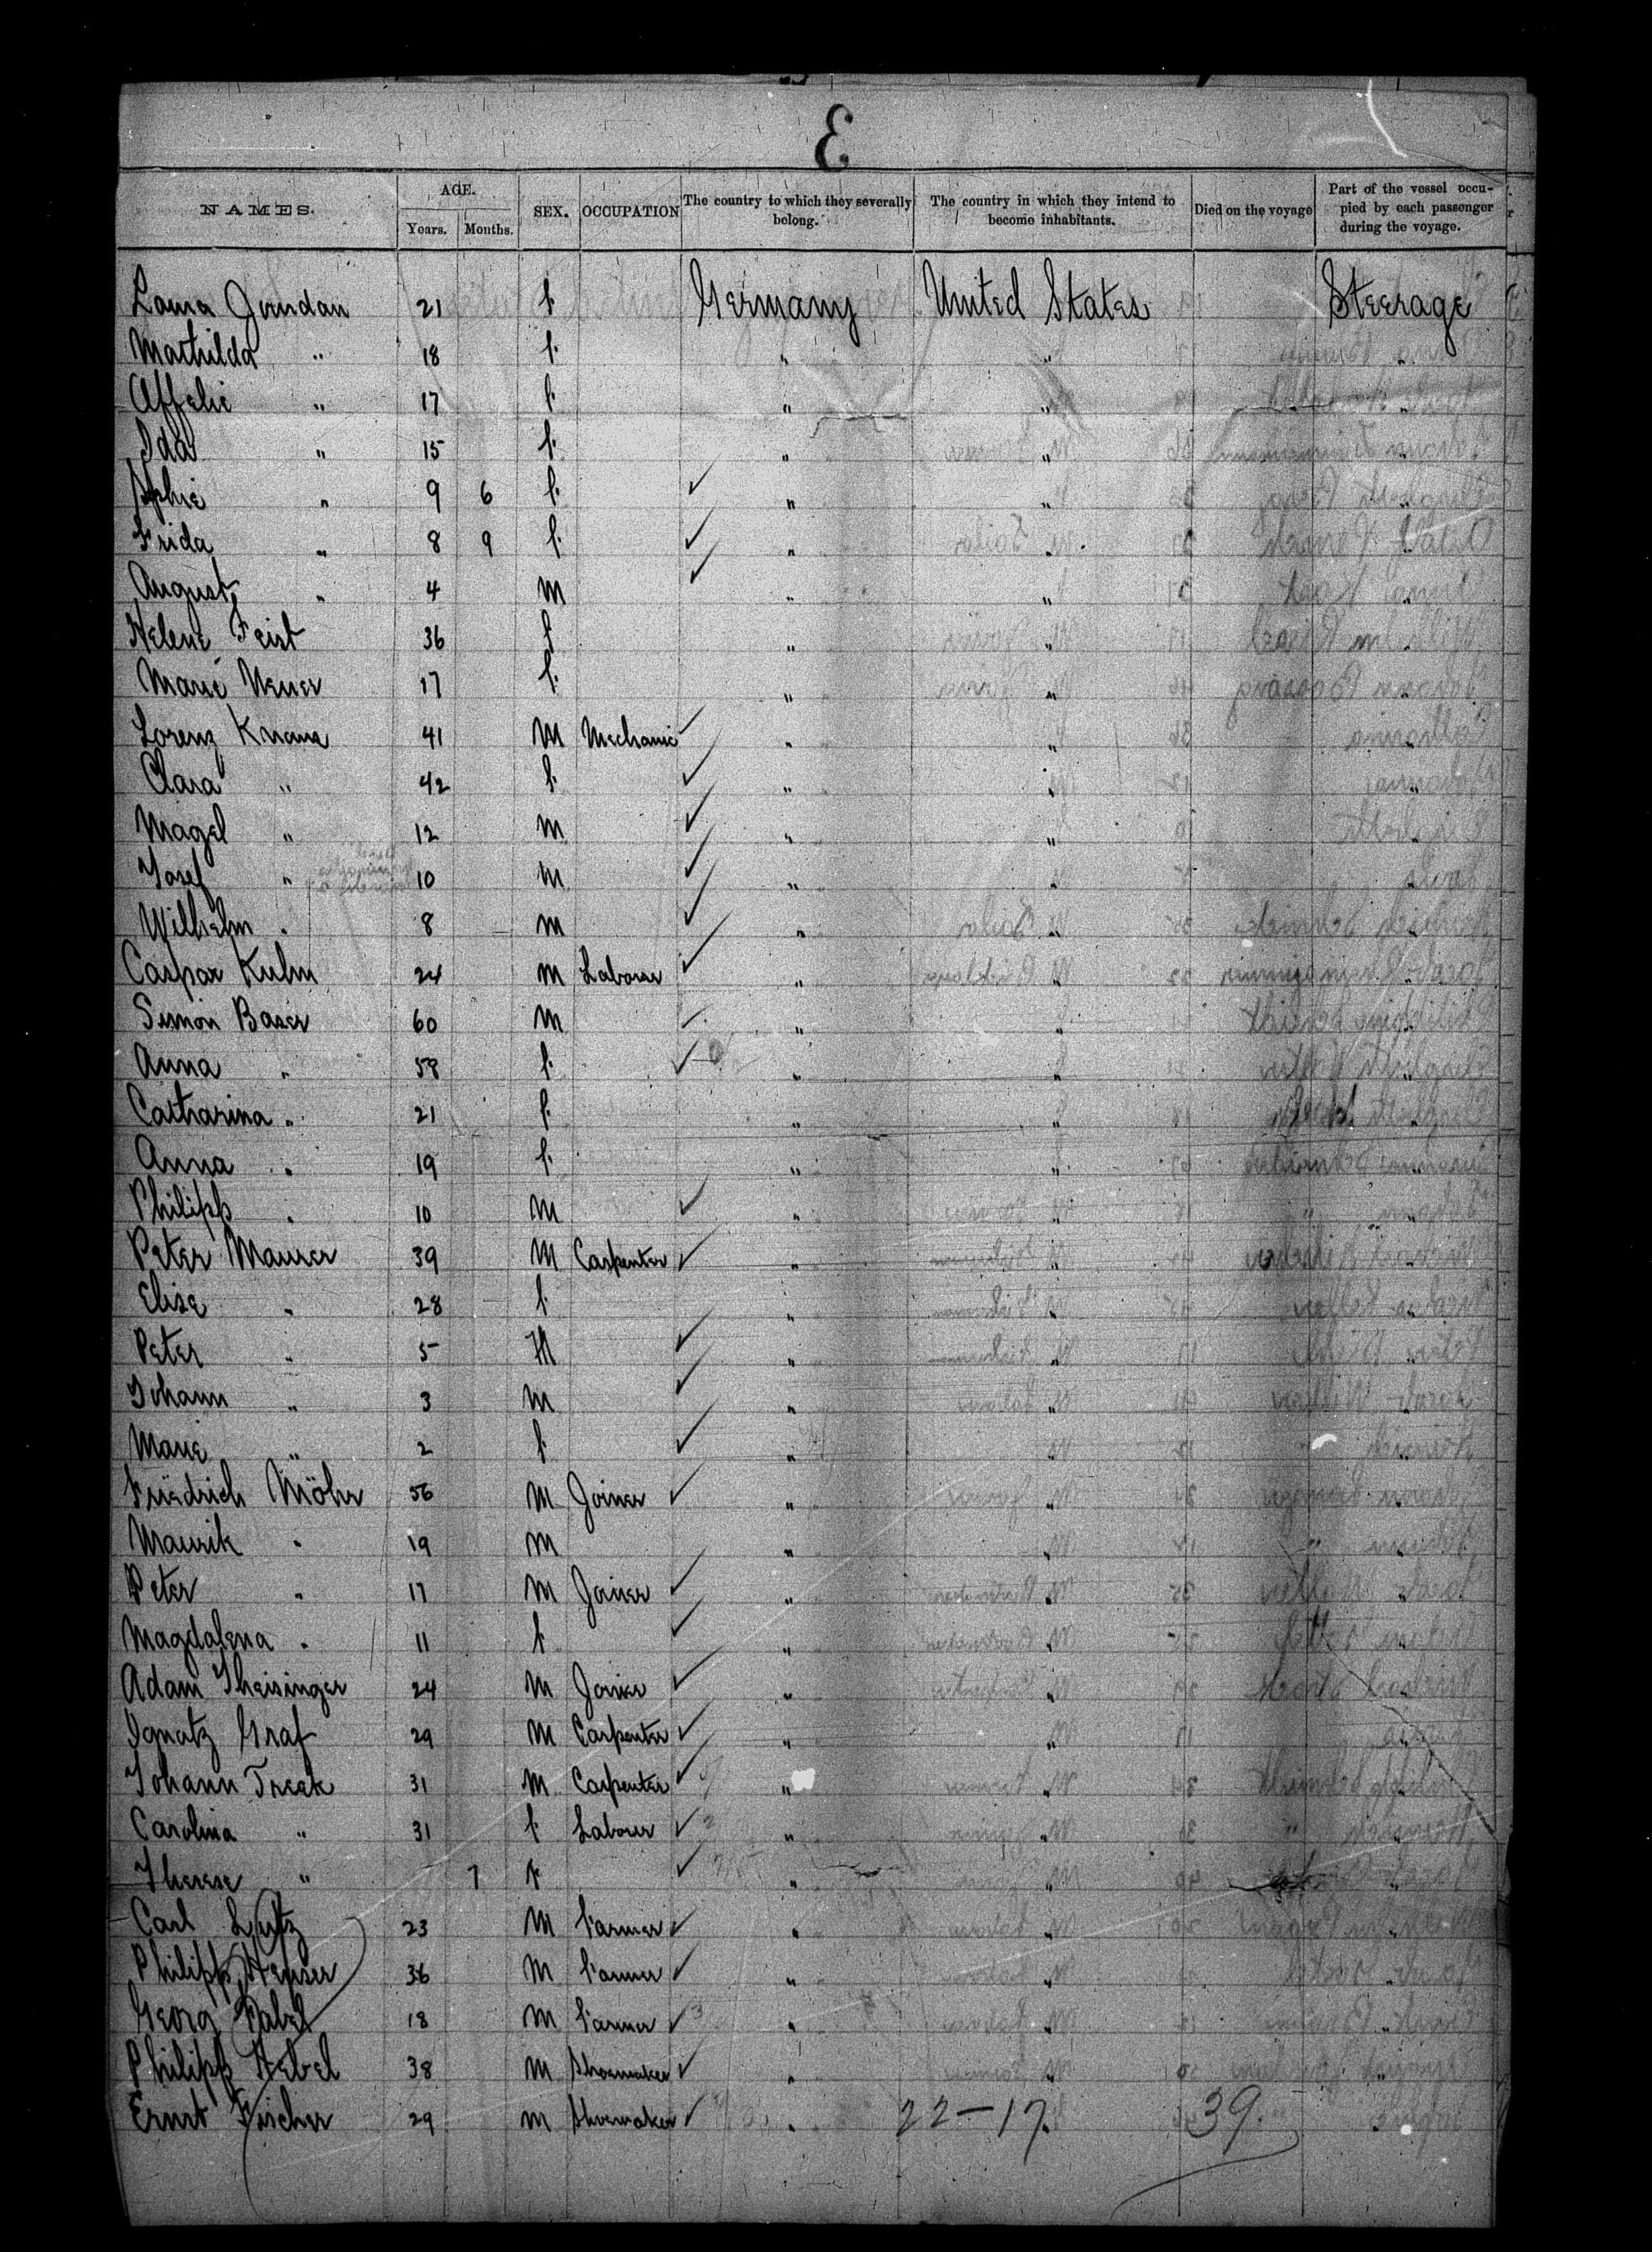 E
NAMES. AGE. Years. Months. SEX. OCCUPATION The country to which they severally belong. The country in which they intend to become inhabitants. Died on the voyage Part of the vessel occupied by each passenger during the voyage.
Laura Jourdan 21 f. Germany United States Steerage
Mathilda " 18 f. " " "
" 17 f. " " "
Ida " 15 f. " " "
Sophie " 9 6 f. ✓ " " "
Frida " 8 9 f. ✓ " " "
August " 4 M ✓ " " "
Helene Feist 36 f. " " "
Marie 17 f. " " "
Lorenz 41 M Mechanic ✓ " " "
Clara " 42 f. ✓ " " "
Magel " 12 M ✓ " " "
Josef " 10 M ✓ " " "
Wilhelm " 8 M ✓ " " "
Caspar Kuhn 24 M Laborer ✓ " " "
Simon Baser 60 M ✓ " " "
Anna " 58 f. ✓ " " "
Catharina " 21 f. " " "
Anna " 19 f. " " "
Philipp " 10 M ✓ " " "
Peter Maurer 39 M Carpenter ✓ " " "
Elise " 28 f. " " "
Peter " 5 M ✓ " " "
Johann " 3 M ✓ " " "
Marie " 2 f. ✓ " " "
Friedrich Möhr 56 M Joiner ✓ " " "
Maurik " 19 M " " "
Peter " 17 M Joiner ✓ " " "
Magdalena " 11 f. ✓ " " "
Adam Theisinger 24 M Joiner ✓ " " "
Ignatz Graf 29 M Carpenter ✓ " " "
Johann Treek 31 M Carpenter ✓ " " "
Carolina " 31 f. Laborer ✓ " " "
Therese " 7 f. ✓ " " "
Carl Lutz 23 M Farmer ✓ " " "
Philipp Heuser 36 M Farmer ✓ " " "
Georg 18 M Farmer ✓ " " "
Philipp Hebel 38 M Shoemaker ✓ " " "
Ernst Fischer 29 M Shoemaker ✓ " 22-17. 39.